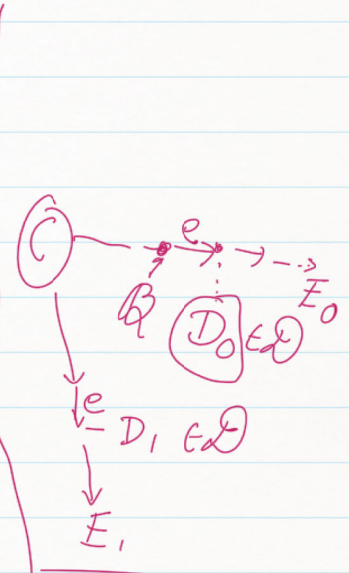 C
e
B
E₀
D₀ ∈ 𝒟
e
D₁ ∈ 𝒟
E₁